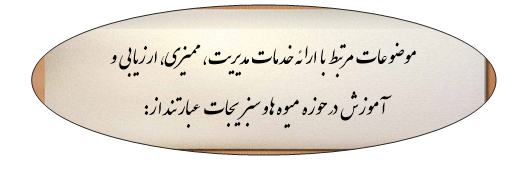 موضوعات مرتبط با ارائه خدمات مدیریت، ممیزی، ارزیابی و
آموزش در حوزه میوه ها و سبزیجات عبارتند از: